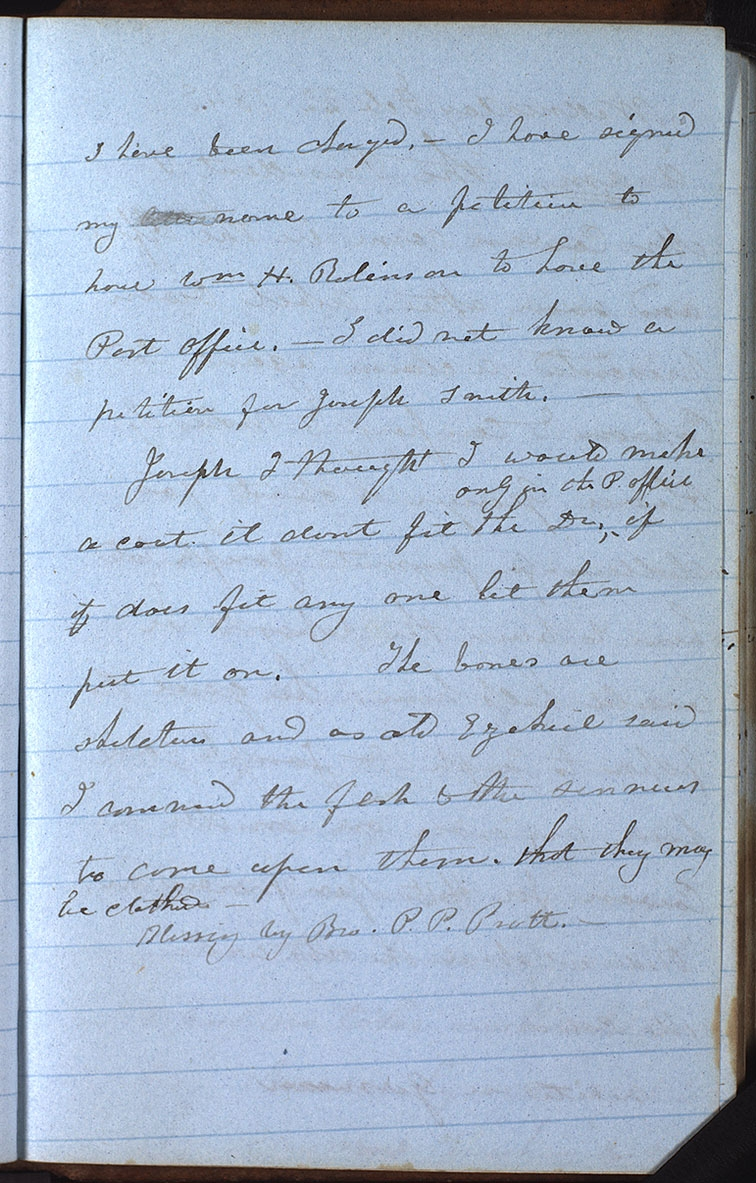 I have been charged. – I have signed
my name to a petition to
have Wm H. Robinson to have the
Post office. – I did not know a
petition for Joseph Smith. —
Joseph I thought I would make
only in the P office
a coat. it dont fit the Dr, if
it does fit any one let them
put it on. The bones are
skeleton and as old Ezekiel said
I command the flesh & the sinnews
to come upon them. that they may
be clothed –
Blessing by Bro. P. P. Pratt. —